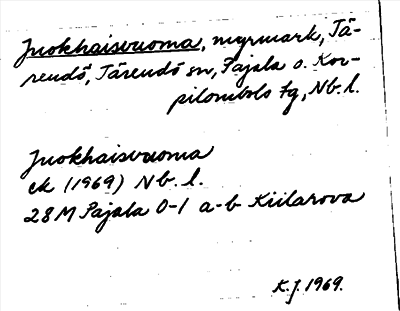 Juokhaisvuoma, myrmark, Tä-
rendö, Tärendö sn, Pajala o. Kor-
pilombolo tg, Nb. l.
Juokhaisvuoma
ek (1969) Nb. l.
28M Pajala 0-1 a-b Kiilarova
K.J. 1969.